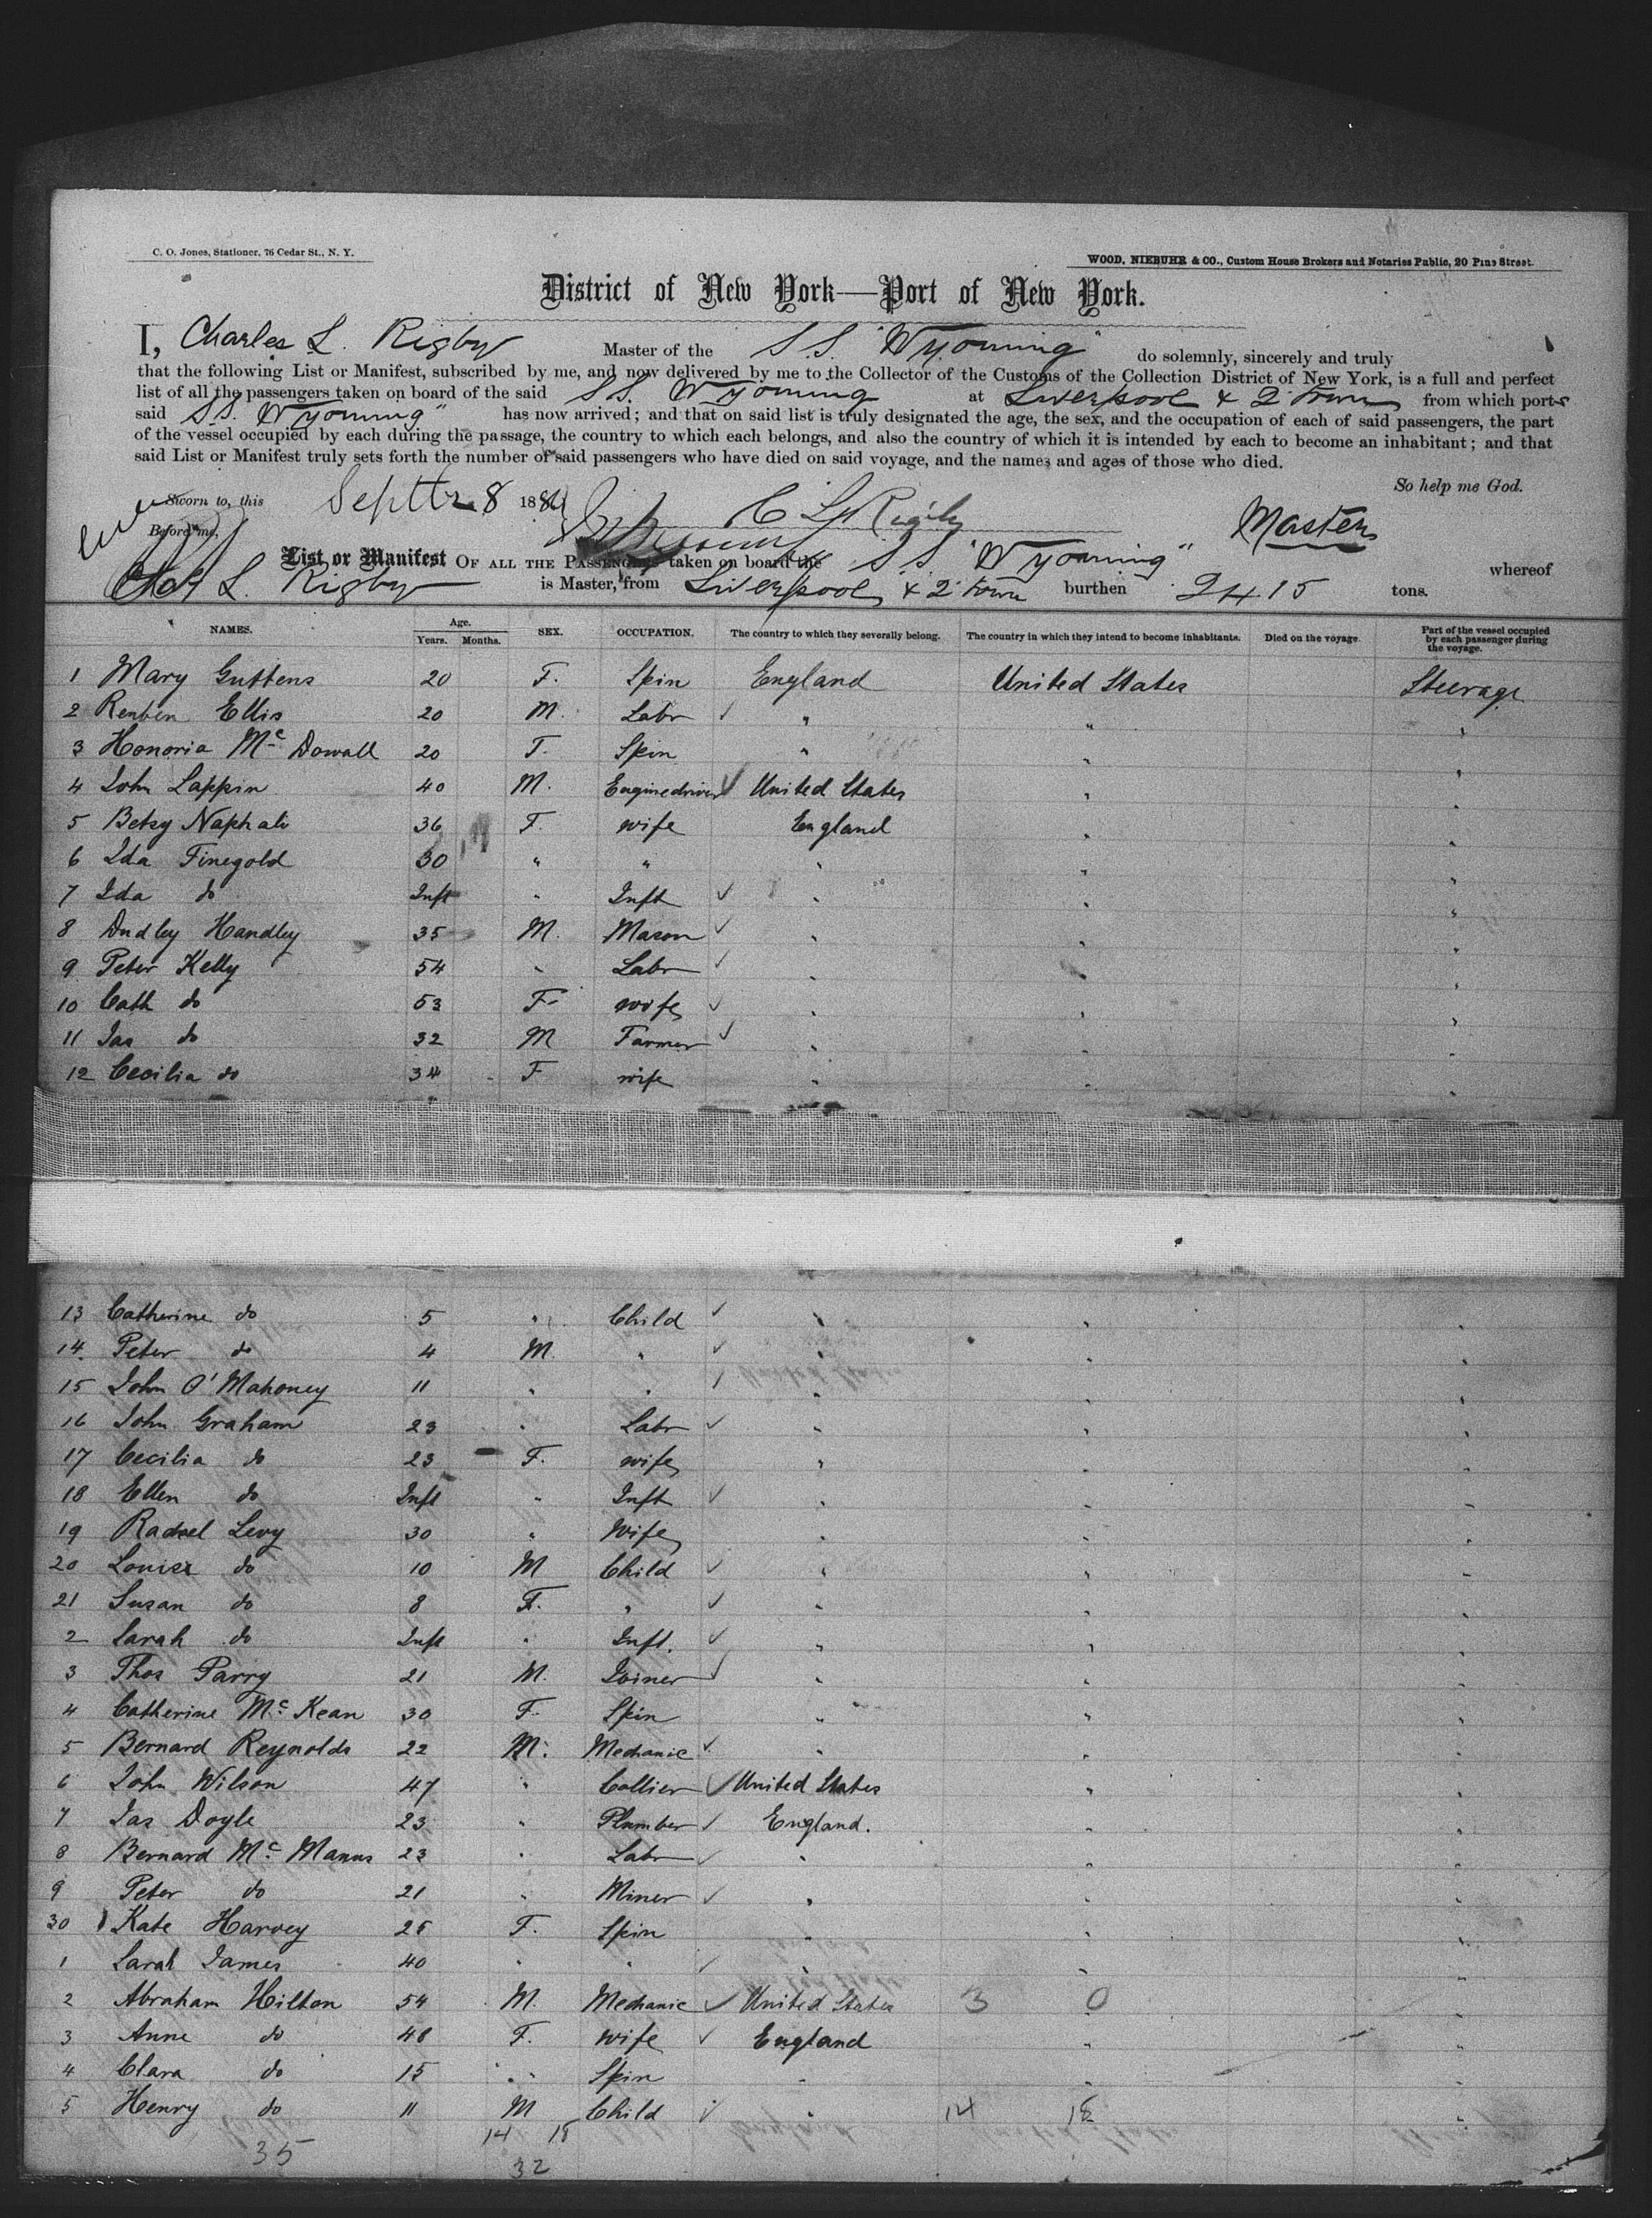 C. O. Jones, Stationer, 76 Cedar St., N. Y.
WOOD, NIEBUHR & CO., Custom House Brokers and Notaries Public, 20 Pine Street.
District of New York—Port of New York.
I, Charles L. Rigby Master of the S.S. "Wyoming" do solemnly, sincerely and truly
that the following List or Manifest, subscribed by me, and now delivered by me to the Collector of the Customs of the Collection District of New York, is a full and perfect
list of all the passengers taken on board of the said S.S. Wyoming at Liverpool & Q Town from which ports
said S.S. Wyoming" has now arrived; and that on said list is truly designated the age, the sex, and the occupation of each of said passengers, the part
of the vessel occupied by each during the passage, the country to which each belongs, and also the country of which it is intended by each to become an inhabitant; and that
said List or Manifest truly sets forth the number of said passengers who have died on said voyage, and the names and ages of those who died.
So help me God.
Sworn to, this 8 188 C L Rigby Master
Before me,
List or Manifest OF ALL THE PASSENGERS taken on board the S.S. "Wyoming" whereof
Chas L. Rigby is Master, from Liverpool & Q Town burthen 2415 tons.
NAMES. Age. Years. Months. SEX. OCCUPATION. The country to which they severally belong. The country in which they intend to become inhabitants. Died on the voyage. Part of the vessel occupied by each passenger during the voyage.
1 Mary Guttens 20 F. Spin England United States Steerage
2 Reuben Ellis 20 M. Labr " " "
3 Honoria Mc Dowall 20 F. Spin " " "
4 John Lappin 40 M. Enginedriver United States " "
5 Betsy Naphali 36 F. wife England " "
6 Ida Finegold 30 " " " " "
7 Ida do Inft " Inft " " "
8 Dudley Handley 35 M. Mason " " "
9 Peter Kelly 54 " Labr " "
10 Cath do 53 F. wife " " "
11 Jas do 32 M Farmer " " "
12 Cecilia do 34 F wife " " "
13 Catherine do 5 " Child " " "
14 Peter do 4 M. " " " "
15 John O'Mahoney 11 " " " " "
16 John Graham 23 " Labr " " "
17 Cecilia do 23 F. wife " " "
18 Ellen do Inft " Inft " " "
19 Rachel Levy 30 " Wife " " "
20 Louise do 10 M Child " " "
21 Susan do 8 F. " " " "
2 Sarah do Inft " Inft. " " "
3 Thos Parry 21 M. Joiner " " "
4 Catherine Mc Kean 30 F. Spin " " "
5 Bernard Reynolds 22 M. Mechanic " " "
6 John Wilson 47 " Collier United States " "
7 Jas Doyle 23 " Plumber England. " "
8 Bernard Mc Manus 23 " Labr " " "
9 Peter do 21 " Miner " " "
30 Kate Harvey 25 F. Spin " " "
1 Sarah James 40 " " " " "
2 Abraham Hilton 54 M. Mechanic United States 3 0 "
3 Anne do 48 F. wife England " "
4 Clara do 15 " Spin " " "
5 Henry do 11 M Child " 14 18 "
14 18
35 32